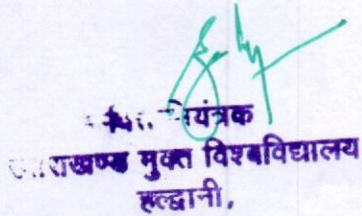 नियंत्रक
उत्तराखण्ड मुक्त विश्वविद्यालय
हल्द्वानी,